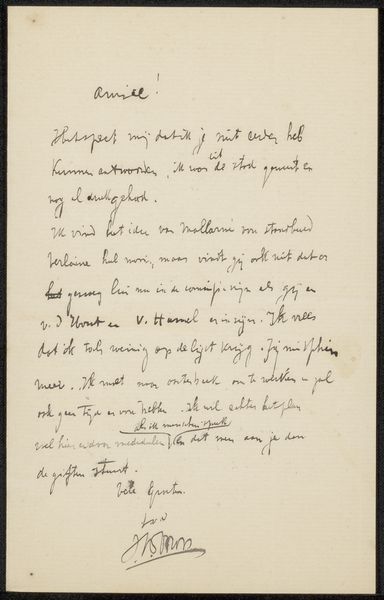 Amice!
Het speet mij dat ik je niet eerder heb
kunnen antwoorden, ik was uit de stad geweest en
nog al druk gehad.
Ik vind het idee van Mallarmé van standbeeld
Verlaine heel mooi, maar vindt gij ook niet dat er
genoeg in de commissie zijn als gij en
v. d Hout en V. Hamel er in zijn. Ik vrees
dat ik toch weinig op de lijst krijg. Jij misschien
meer. Ik moet naar om te werken en zal
ook geen tijd er voor hebben. Ik wil echter het plan
als ik menschen spreek
wel hier en daar mededeelen en dat men aan je dan
de giften stuurt.
Vele Groeten